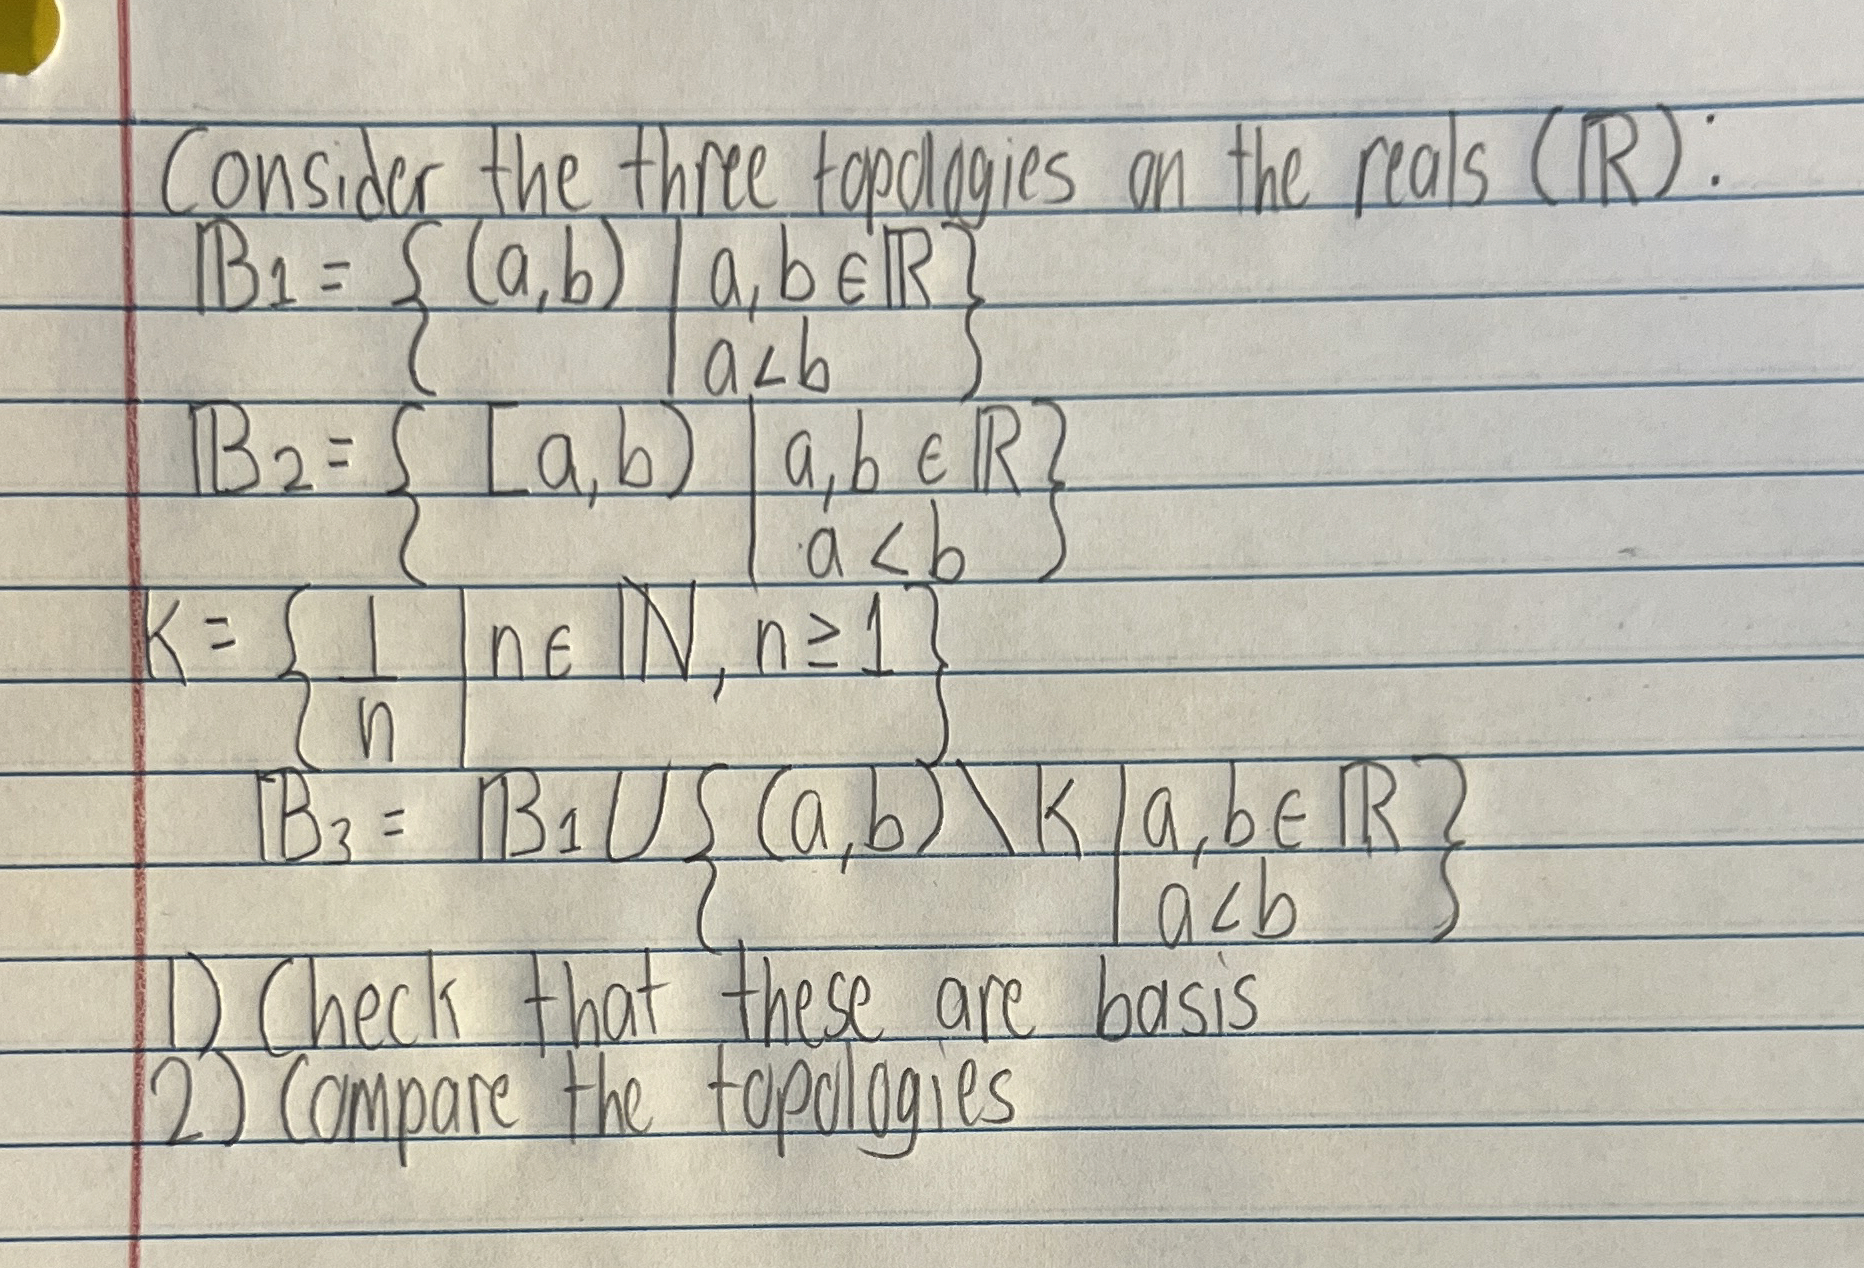 Consider the three topologies on the reals (ℝ):
𝔹1 = { (a,b) | a,b ∈ ℝ
a<b }
𝔹2 = { [a,b) | a,b ∈ ℝ
a<b }
K = { 1/n | n ∈ ℕ, n ≥ 1 }
𝔹3 = 𝔹1 ∪ { (a,b) \ K | a,b ∈ ℝ
a<b }
1) Check that these are basis
2) Compare the topologies